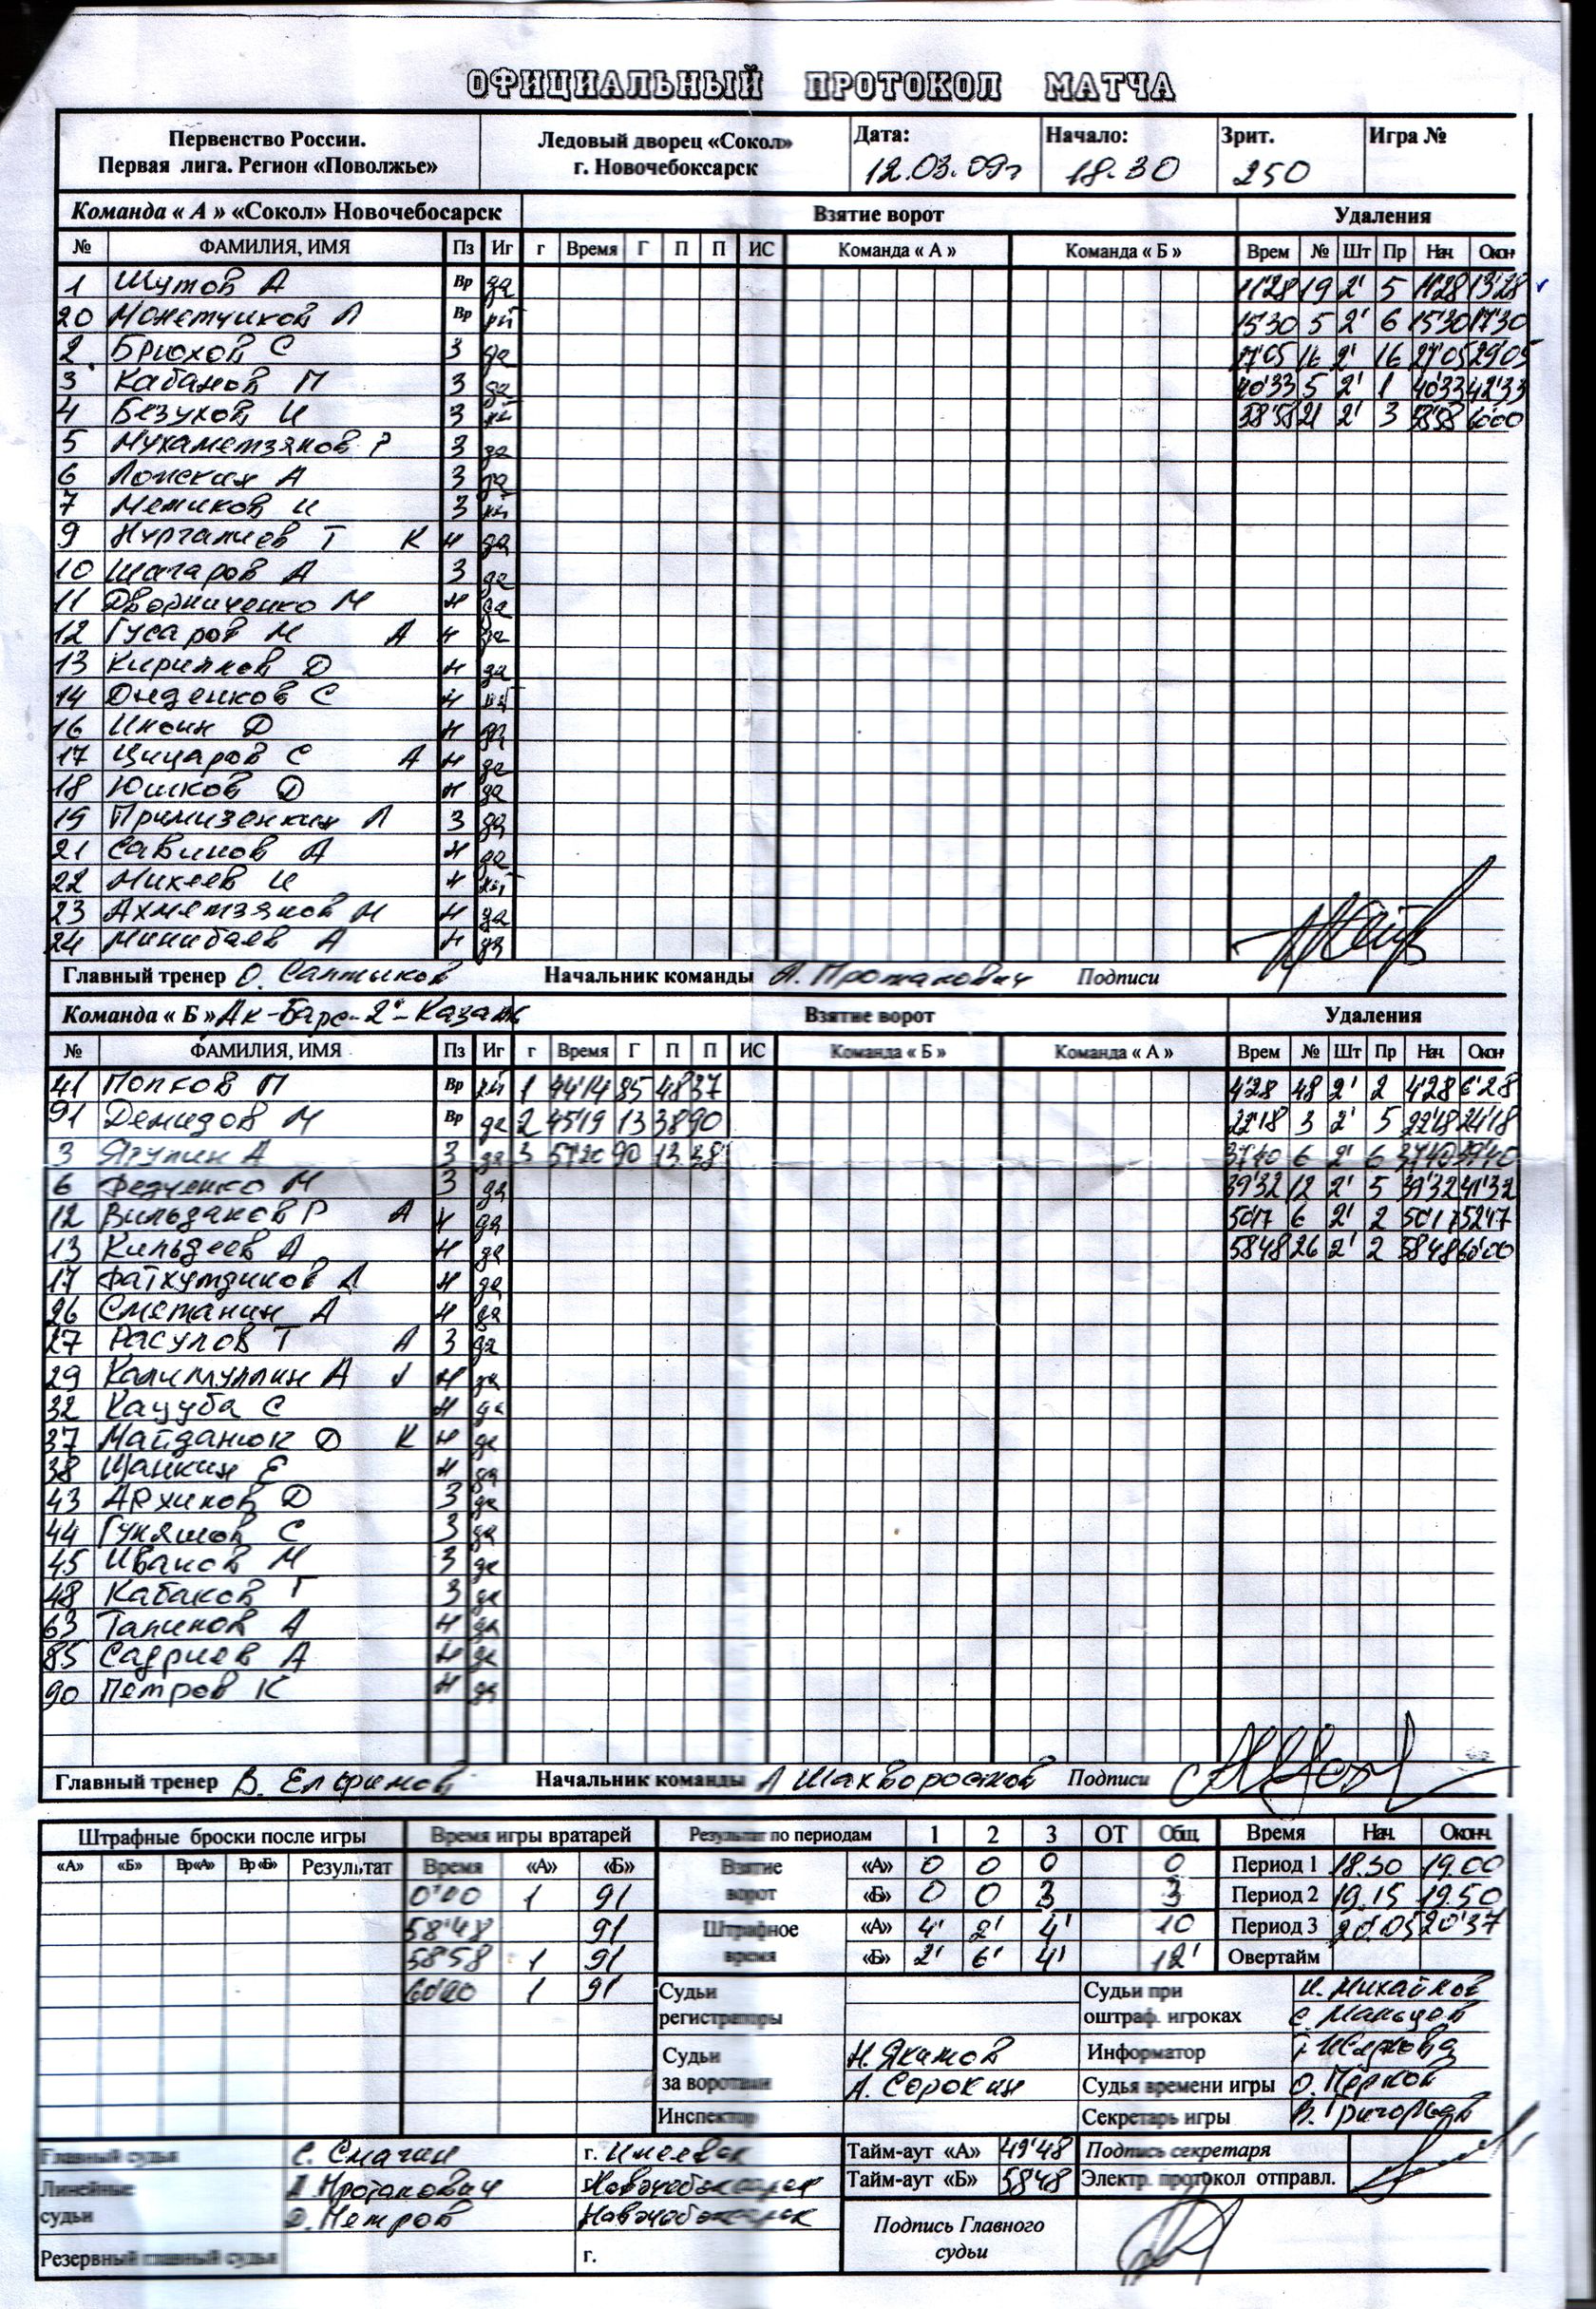 ОФИЦИАЛЬНЫЙ ПРОТОКОЛ МАТЧА
Первенство России. Первая лига. Регион «Поволжье» Ледовый дворец «Сокол» г. Новочебоксарск Дата: 12.03.09г Начало: 18.30 Зрит. 250 Игра №
Команда « А » «Сокол» Новочебосарск Взятие ворот Удаления
№ ФАМИЛИЯ, ИМЯ Пз Иг г Время Г П П ИС Команда « А » Команда « Б » Врем № Шт Пр Нач. Окон
1 Шутов А Вр да 11'28 19 2' 5 11'28 13'28
20 Монетчиков Л Вр 15'30 5 2' 6 15'30 17'30
2 Брюхов С З да 27'05 16 2' 16 27'05 29'05
3 Кабанов П З да 40'33 5 2' 1 40'33 42'33
4 Безухов И З 58'58 21 2' 3 58'58 60'00
5 Мухаметзянов Р З да
6 Ложкин А З да
7 Мешков И З
9 Нургалиев Т К Н да
10 Шагаров А З да
11 Дворниченко М Н да
12 Гусаров М А Н да
13 Кириллов D Н да
14 С Н
16 Инсин D Н да
17 Цицаров С А Н да
18 Юшков D Н да
19 Л З да
21 Савинов А Н да
22 Михеев И Н
23 Ахметзянов М Н да
24 Минибаев А Н да
Главный тренер О. Салтыков Начальник команды А. Протанович Подписи
Команда « Б » Ак-Барс-2"-Казань Взятие ворот Удаления
№ ФАМИЛИЯ, ИМЯ Пз Иг г Время Г П П ИС Команда « Б » Команда « А » Врем № Шт Пр Нач. Окон
41 Попков П Вр 1 44'14 85 48 37 4'28 48 2' 2 4'28 6'28
91 Демидов М Вр да 2 45'19 13 38 90 22'18 3 2' 5 22'18 24'18
3 Ягупин А З да 3 57'20 90 13 38 37'40 6 2' 6 37'40 39'40
6 Федченко М З да 39'32 12 2' 5 39'32 41'32
12 Вильданов Р А Н да 50'17 6 2' 2 50'17 52'17
13 Кильдеев А Н да 58'48 26 2' 2 58'48 60'00
17 Фатхутдинов А Н да
26 Сметанин А Н да
27 Расулов Т А З да
29 Калимуллин А Н да
32 Кацуба С Н да
37 Майданюк D К Н да
38 Щанкин Е Н да
43 Архипов D З да
44 Гуняшов С З да
45 Иванов М З да
48 Кабаков Г З да
63 Тапинов А Н да
85 Садриев А Н да
90 Петров К Н да
Главный тренер В. Елфимов Начальник команды Л Шахворостов Подписи
Штрафные броски после игры Время игры вратарей Результат по периодам 1 2 3 ОТ Общ. Время Нач. Оконч.
«А» «Б» Вр«А» Вр«Б» Результат Время «А» «Б» Взятие ворот «А» 0 0 0 0 Период 1 18.30 19.00
0'00 1 91 «Б» 0 0 3 3 Период 2 19.15 19.50
58'48 91 Штрафное время «А» 4' 2' 4' 10 Период 3 20.05 20'37
58'58 1 91 «Б» 2' 6' 4' 12' Овертайм
60'00 1 91 Судьи регистраторы Судьи при оштраф. игроках И. Михайлов
С. Мальцев
Судьи за воротами Н. Якимов Информатор
А. Сорокин Судья времени игры О. Перков
Инспектор Секретарь игры В. Григорьев
Главный судья С. Смагин г. Ижевск Тайм-аут «А» 49'48 Подпись секретаря
Линейные судьи А. Протанович г. Новочебоксарск Тайм-аут «Б» 58'48 Электр. протокол отправл.
D. Петров Новочебоксарск Подпись Главного судьи
Резервный главный судья г.